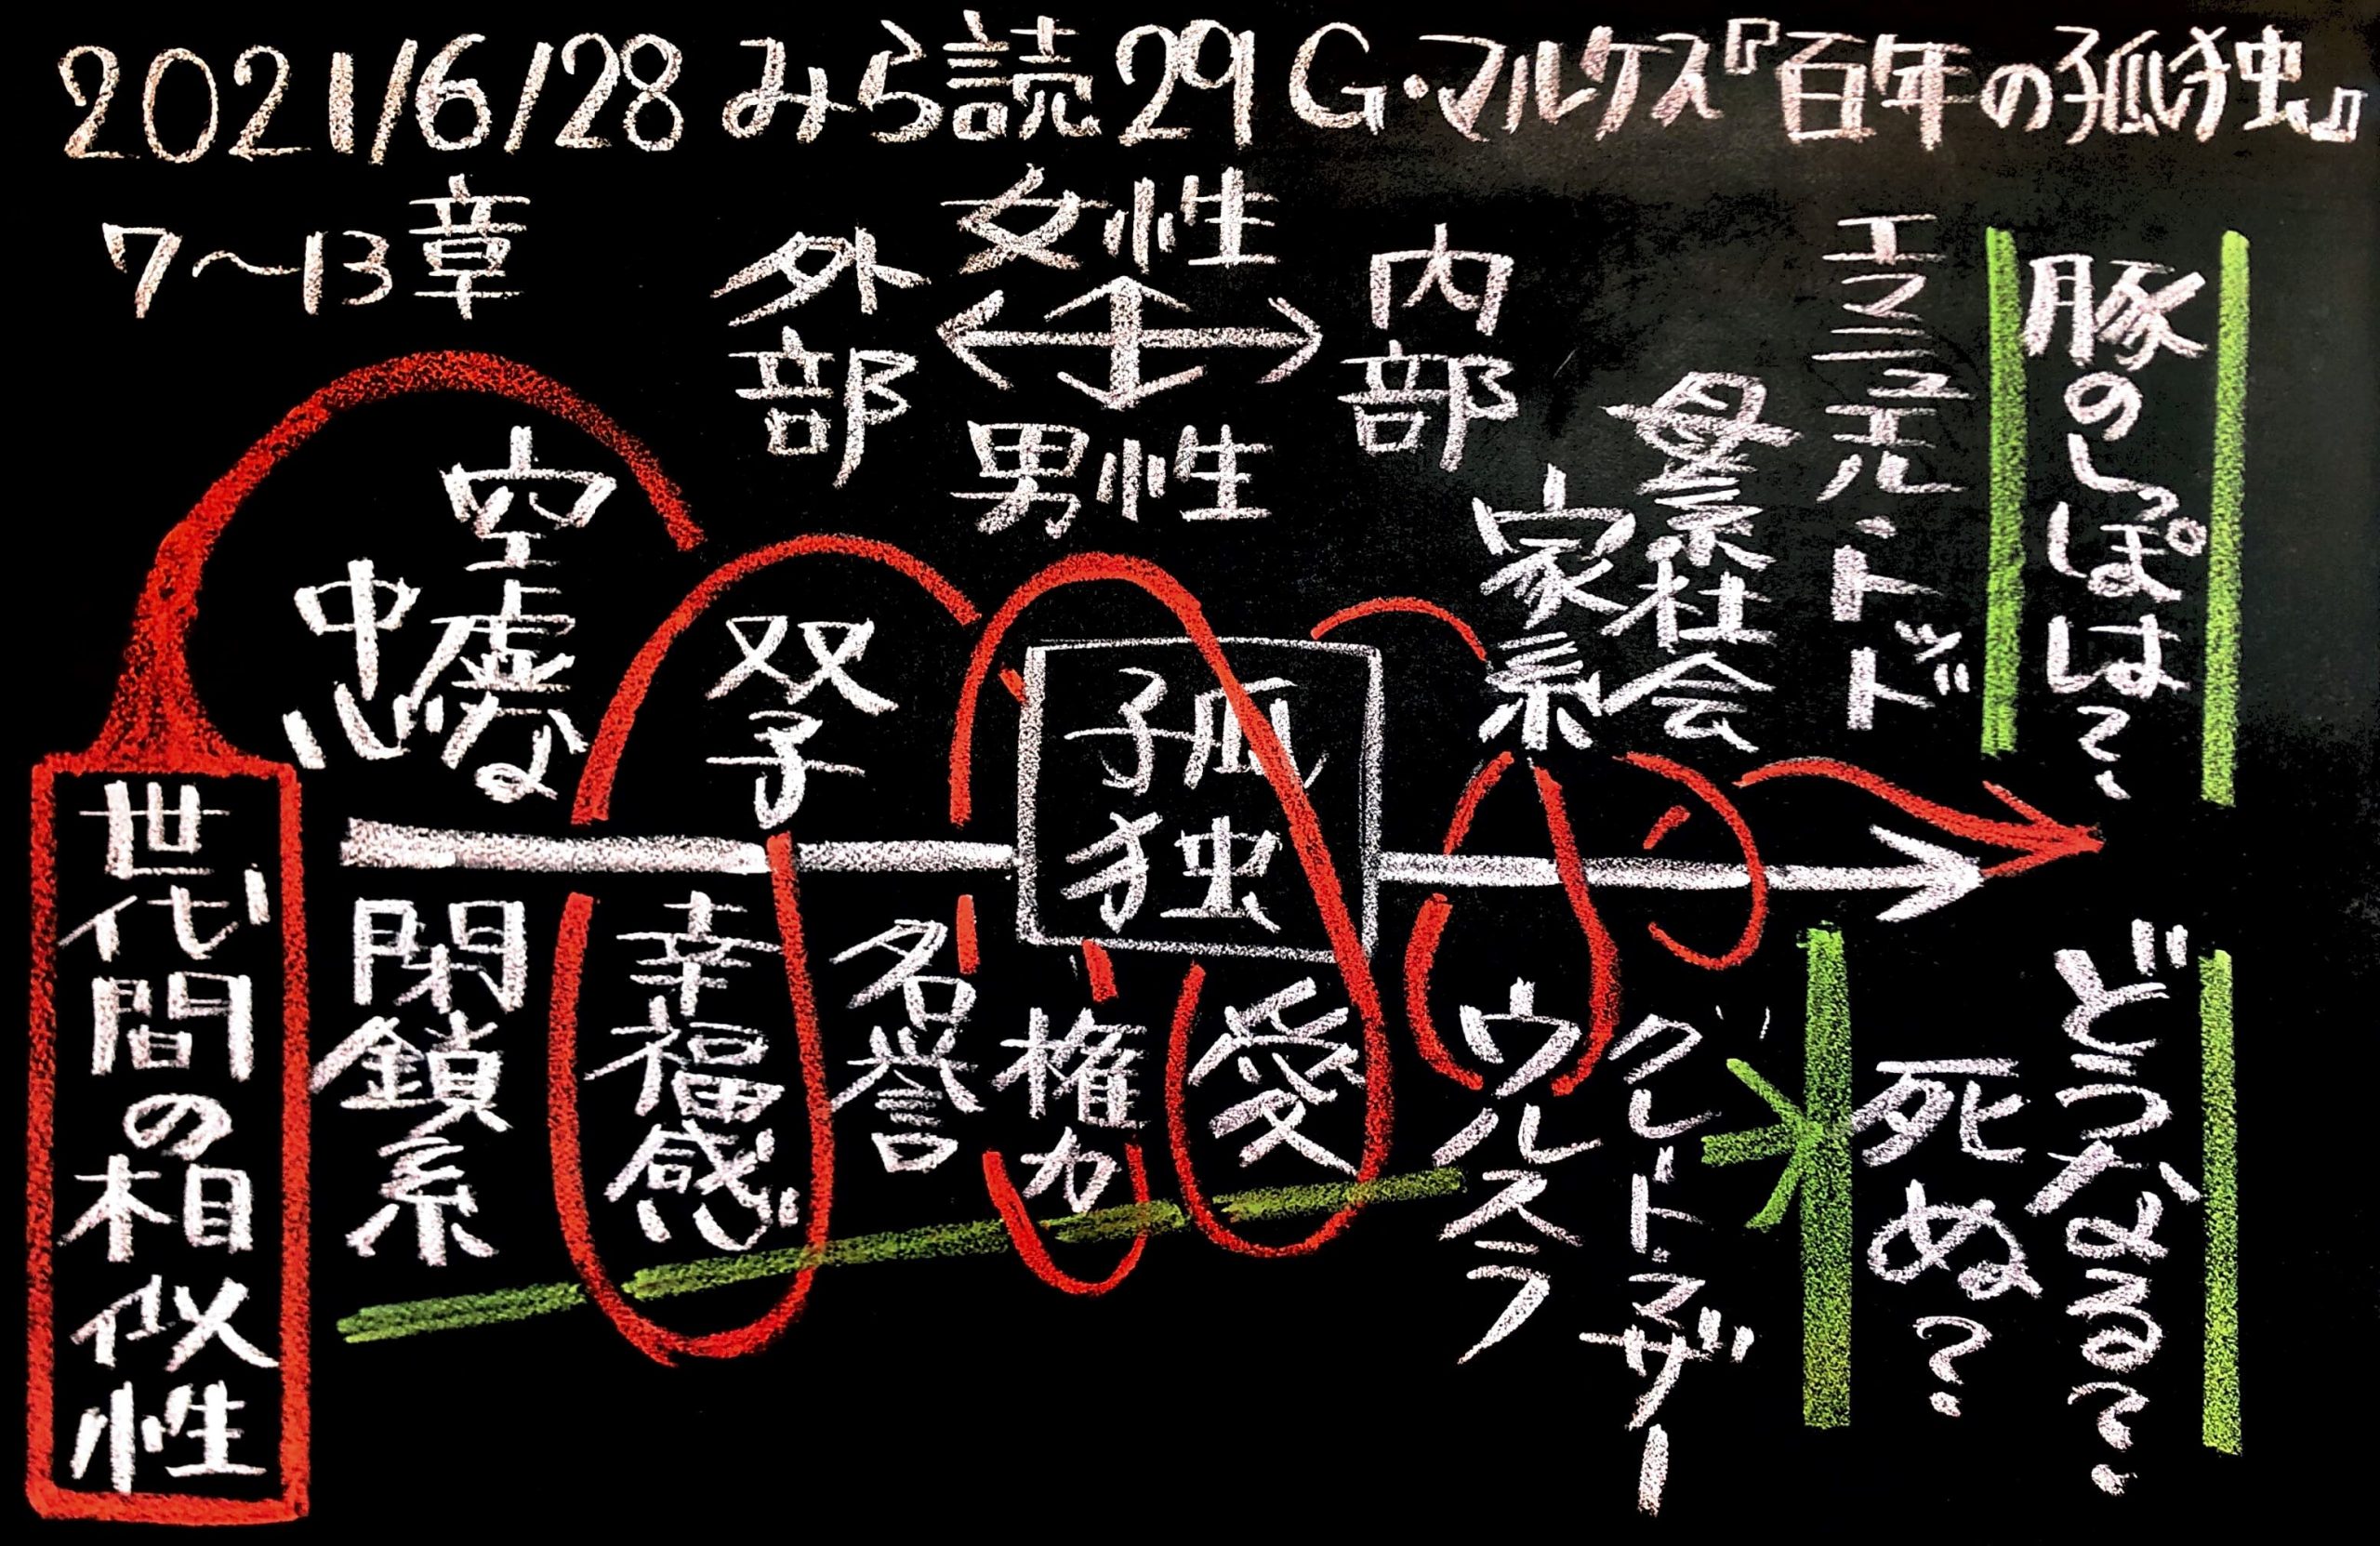 2021/6/28 みら読29 G・マルケス『百年の孤独』
7〜13章
女性
外部
内部
男性
エマニュエル・トッド
母系社会
家系
豚のしっぽは?
空虚な
中心
双子
孤独
世代間の相似性
閉鎖系
幸福感
名誉
権力
愛
ウルスラ
グレートマザー
死ぬ?
どうなる?